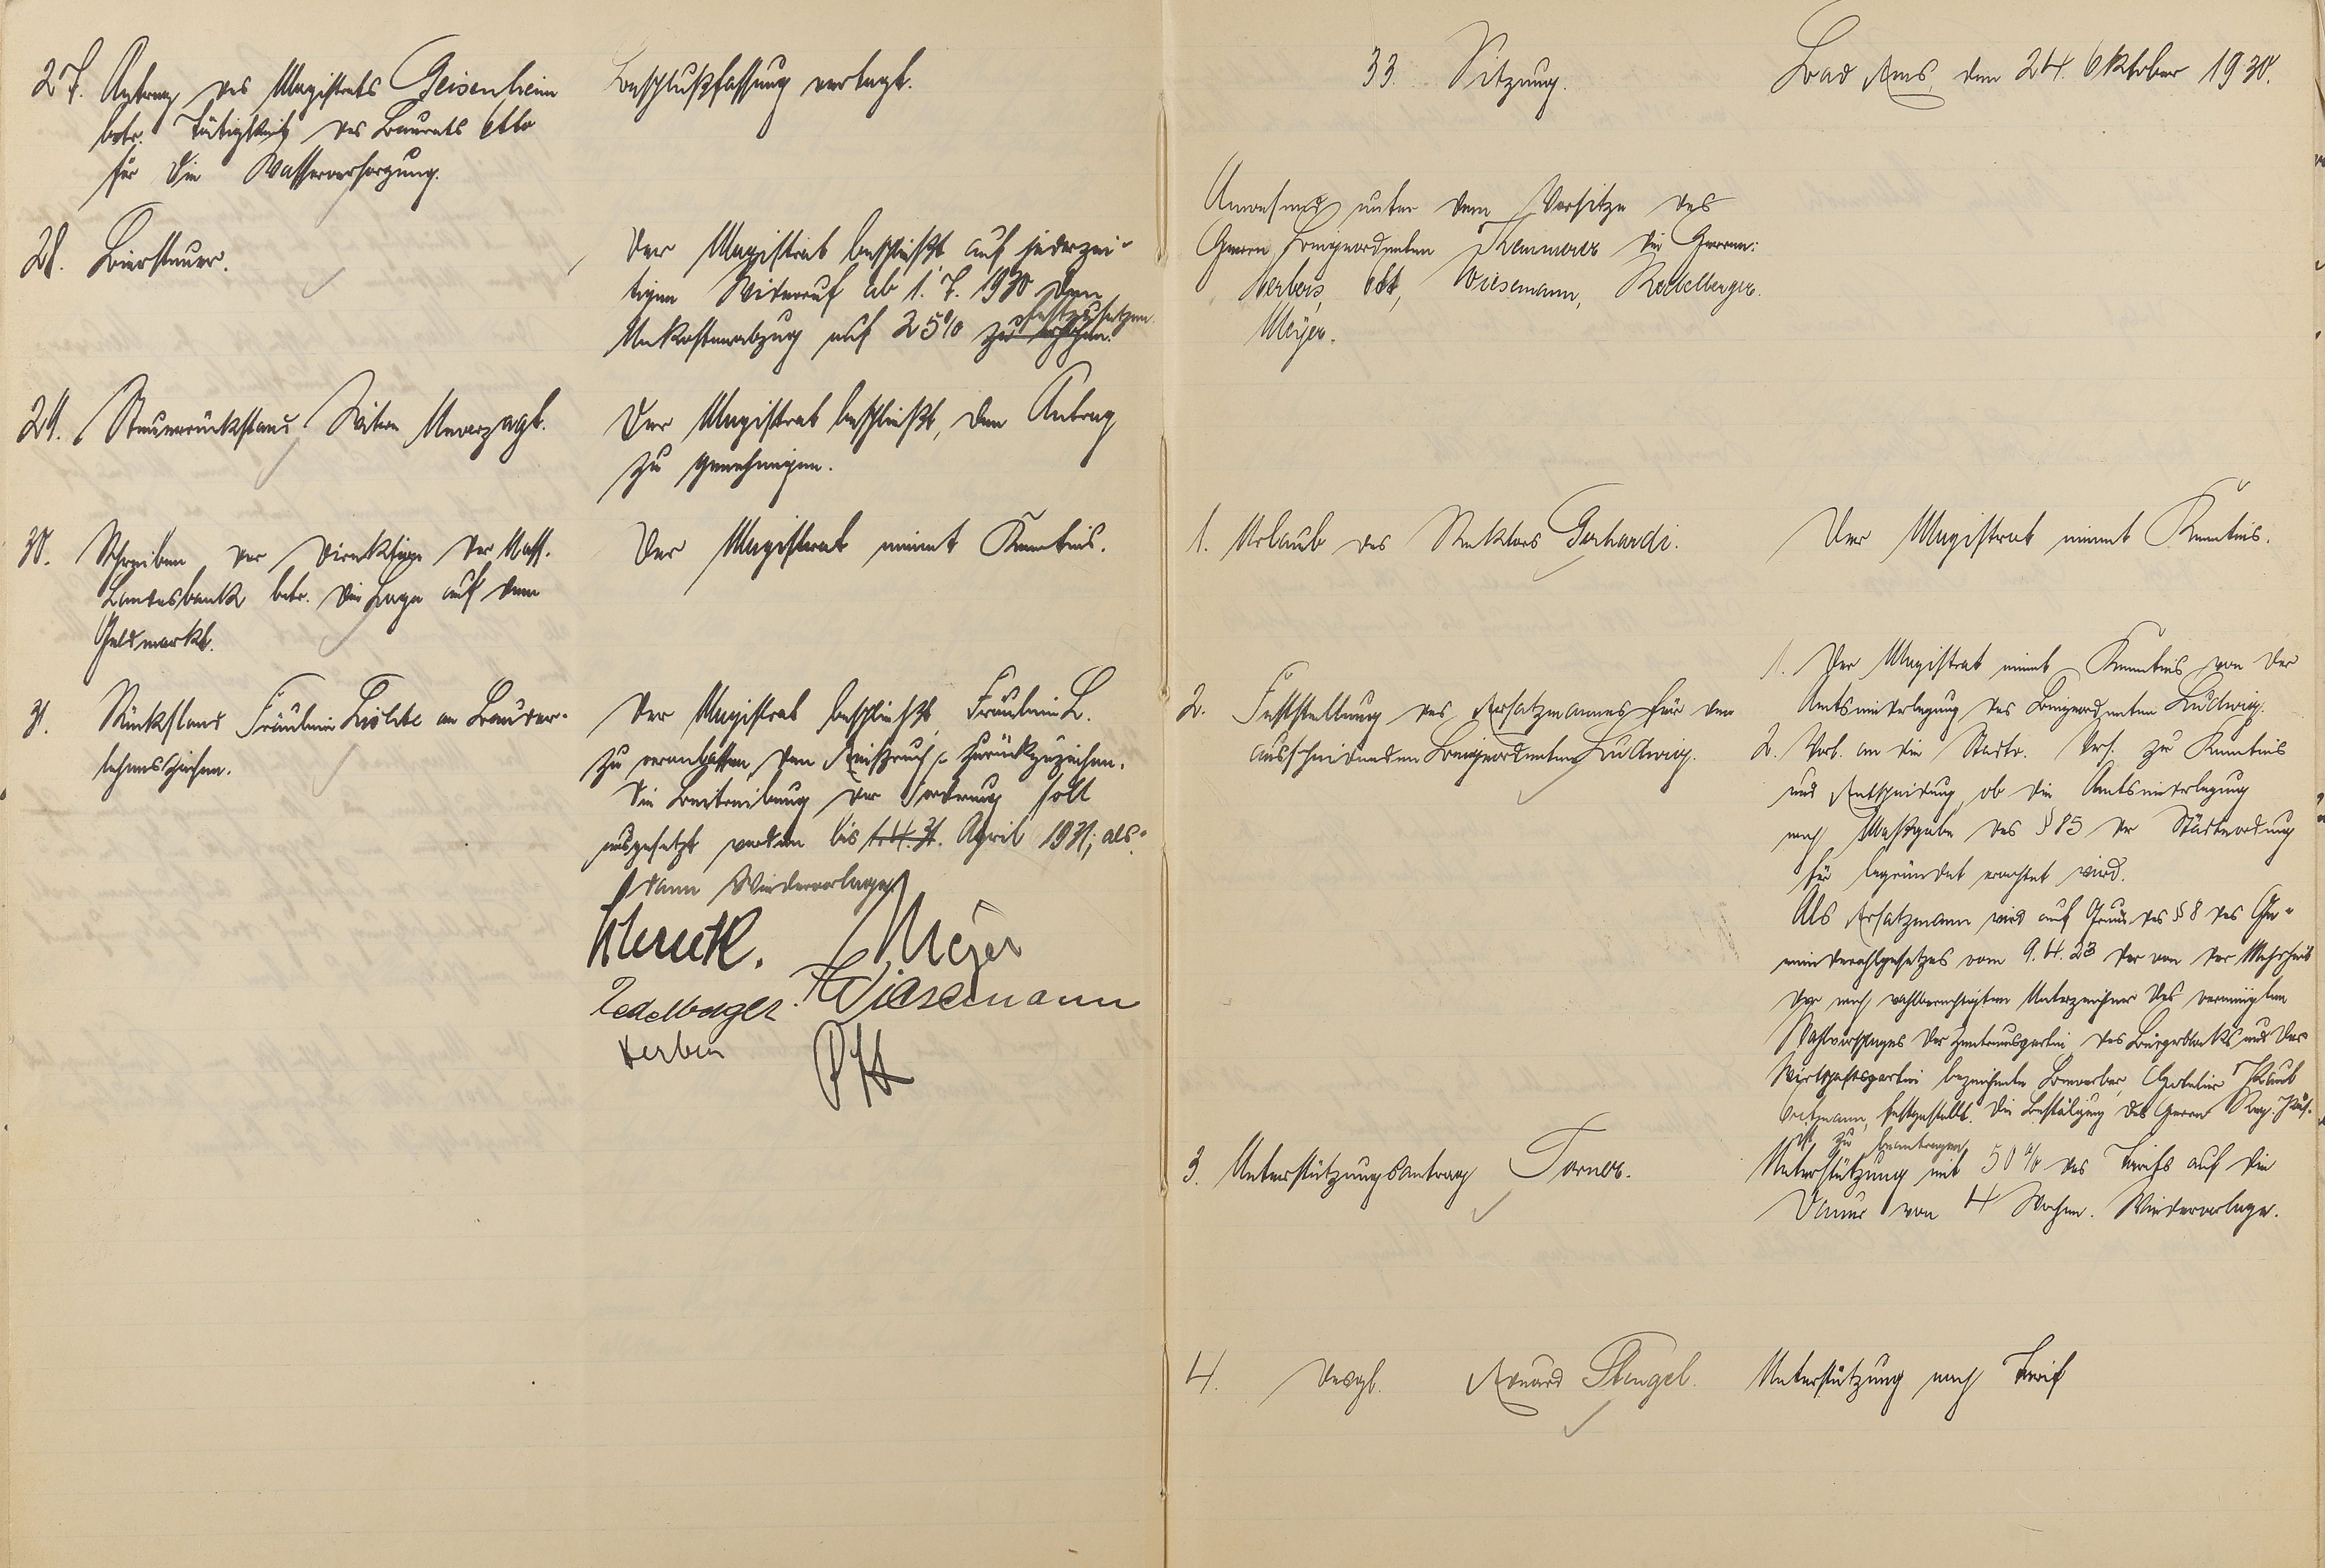 27. Antrag des Magistrats Geisenheim
betr. Tätigkeit des Baurats Otto
für die Wasserversorgung.
Beschlußfassung vertagt.
28. Biersteuer.
Der Magistrat beschließt auf jederzei-
tigen Widerruf ab 1. 7. 1930 den
Unkostenabzug auf 25% festzusetzen.
29. Steuerrückstand Witwe Unverzagt.
Der Magistrat beschließt, den Antrag
zu genehmigen.
30. Schreiben der Direktion der Nass.
Landesbank betr. die Lage auf dem
Geldmarkt.
Der Magistrat nimmt Kenntnis.
31. Rückstand Fräulein an Baudar-
lehenszinsen.
Der Magistrat beschließt, Fräulein L.
zu veranlassen, den Einspruch zurückzuziehen.
Die Beitreibung der Forderung soll
ausgesetzt werden bis April 1931; als-
dann Wiedervorlage.
Meyer
Redelberger. Wiesemann
Herbin
33. Sitzung.
Bad Ems, den 24. Oktober 1930.
Anwesend unter dem Vorsitze des
Herrn Beigeordneten Kemmerer die Herren:
Ott, Wiesemann, Redelberger
Meyer.
1. Urlaub des Rektors Gerhardi.
Der Magistrat nimmt Kenntnis.
2. Feststellung des Ersatzmannes für den
ausscheidenden Beigeordneten Ludwig.
1. Der Magistrat nimmt Kenntnis von der
Amtsniederlegung des Beigeordneten Ludwig.
2. Vorl. an die Stadtv. Vers. zur Kenntnis
und Entscheidung, ob die Amtsniederlegung
nach Maßgabe des § 85 der Städteordnung
für begründet erachtet wird.
Als Ersatzmann wird auf Grund des § 8 des Ge-
meindewahlgesetzes vom 9. 4. 23 der von der Mehrheit
der noch wahlberechtigten Unterzeichner des vereinigten
Wahlvorschlages der Zentrumspartei des Bürgerblocks und der
Wirtschaftspartei bezeichnete Bewerber, Hotelier
festgestellt. Die Bestätigung des Herrn Reg. Präs.
ist zu beantragen.
3. Unterstützungsantrag
Unterstützung mit 50% des Tarifs auf die
Dauer von 4 Wochen. Wiedervorlage.
4. Desgl. Eduard Stengel.
Unterstützung nach Tarif